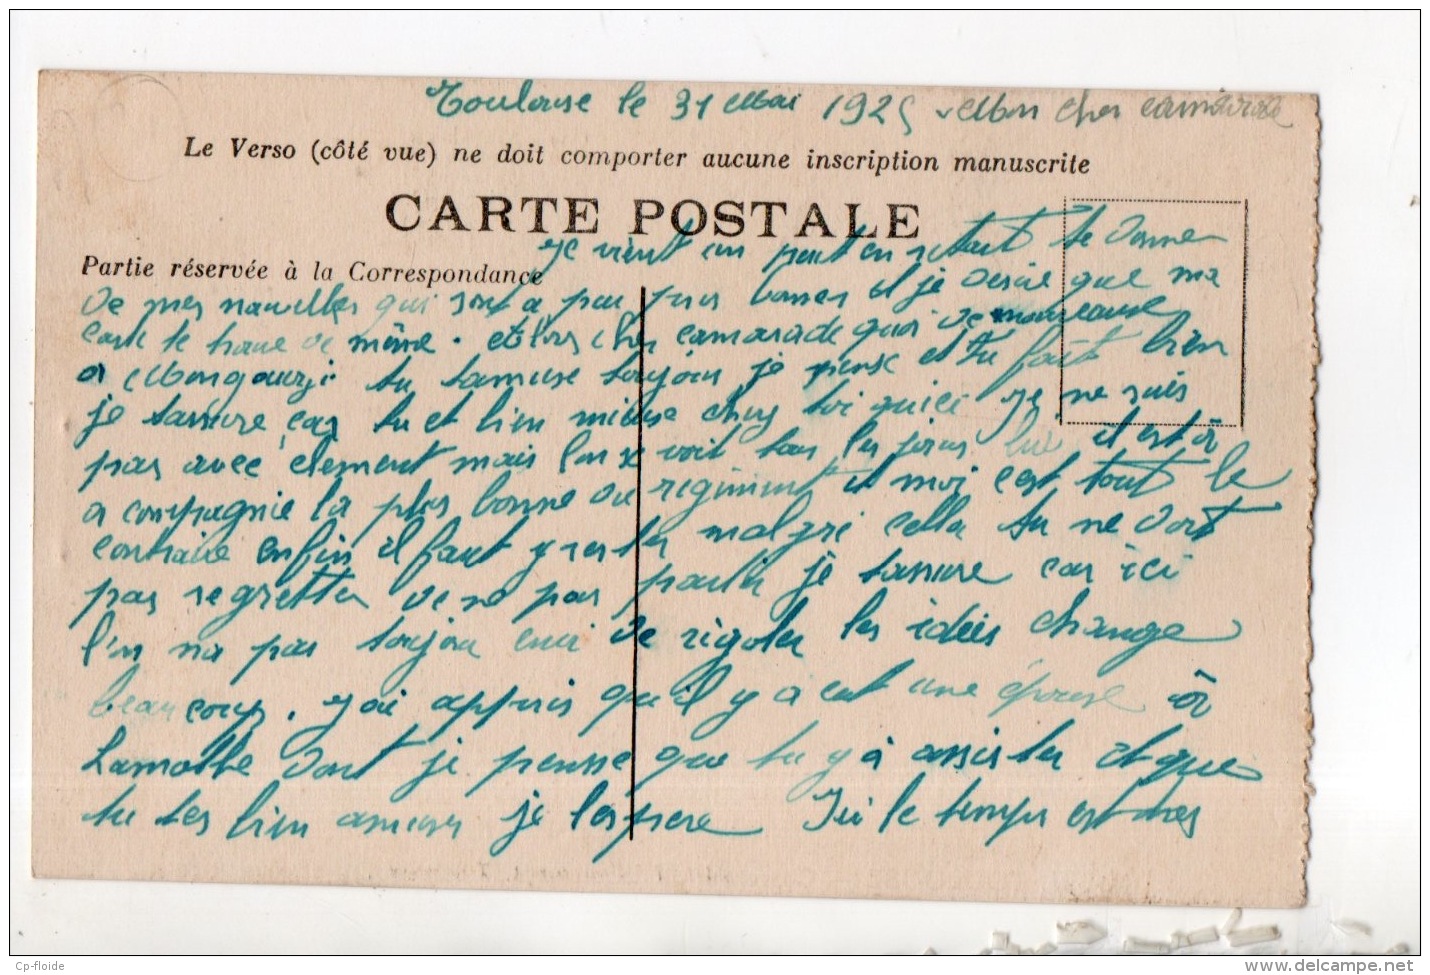 Toulouse le 31 Mai 192 Mon cher camarade
Le Verso (côté vue) ne doit comporter aucune inscription manuscrite
CARTE POSTALE
Je vient un peut en retart te donner
Partie réservée à la Correspondance
de mes nouvelles qui sont a peu pres bonnes et je desire que ma
carte te trouve de même. et alors cher camarade quoi de nouveaux
a tu tamuse toujours je pense et tu fait bien
je tassure car tu et bien mieuse chez toi quici Je ne suis
pas avec clement mais lon se voit tous les jours lui il est à
a compagnie la plus bonne du regiment et moi cest tout le
contraire enfin il faut y rester malgré cella tu ne doit
pas regretter de ne pas partir je tassure car ici
l'on na pas toujour envi de rigoler les idées change
beaucoup. J'ai appris quil y a eut une à
Lamothe dont je pensse que tu y à assister et que
tu tes bien amuser je lespere Ici le temps est tres
Cp-floide
www.delcampe.net